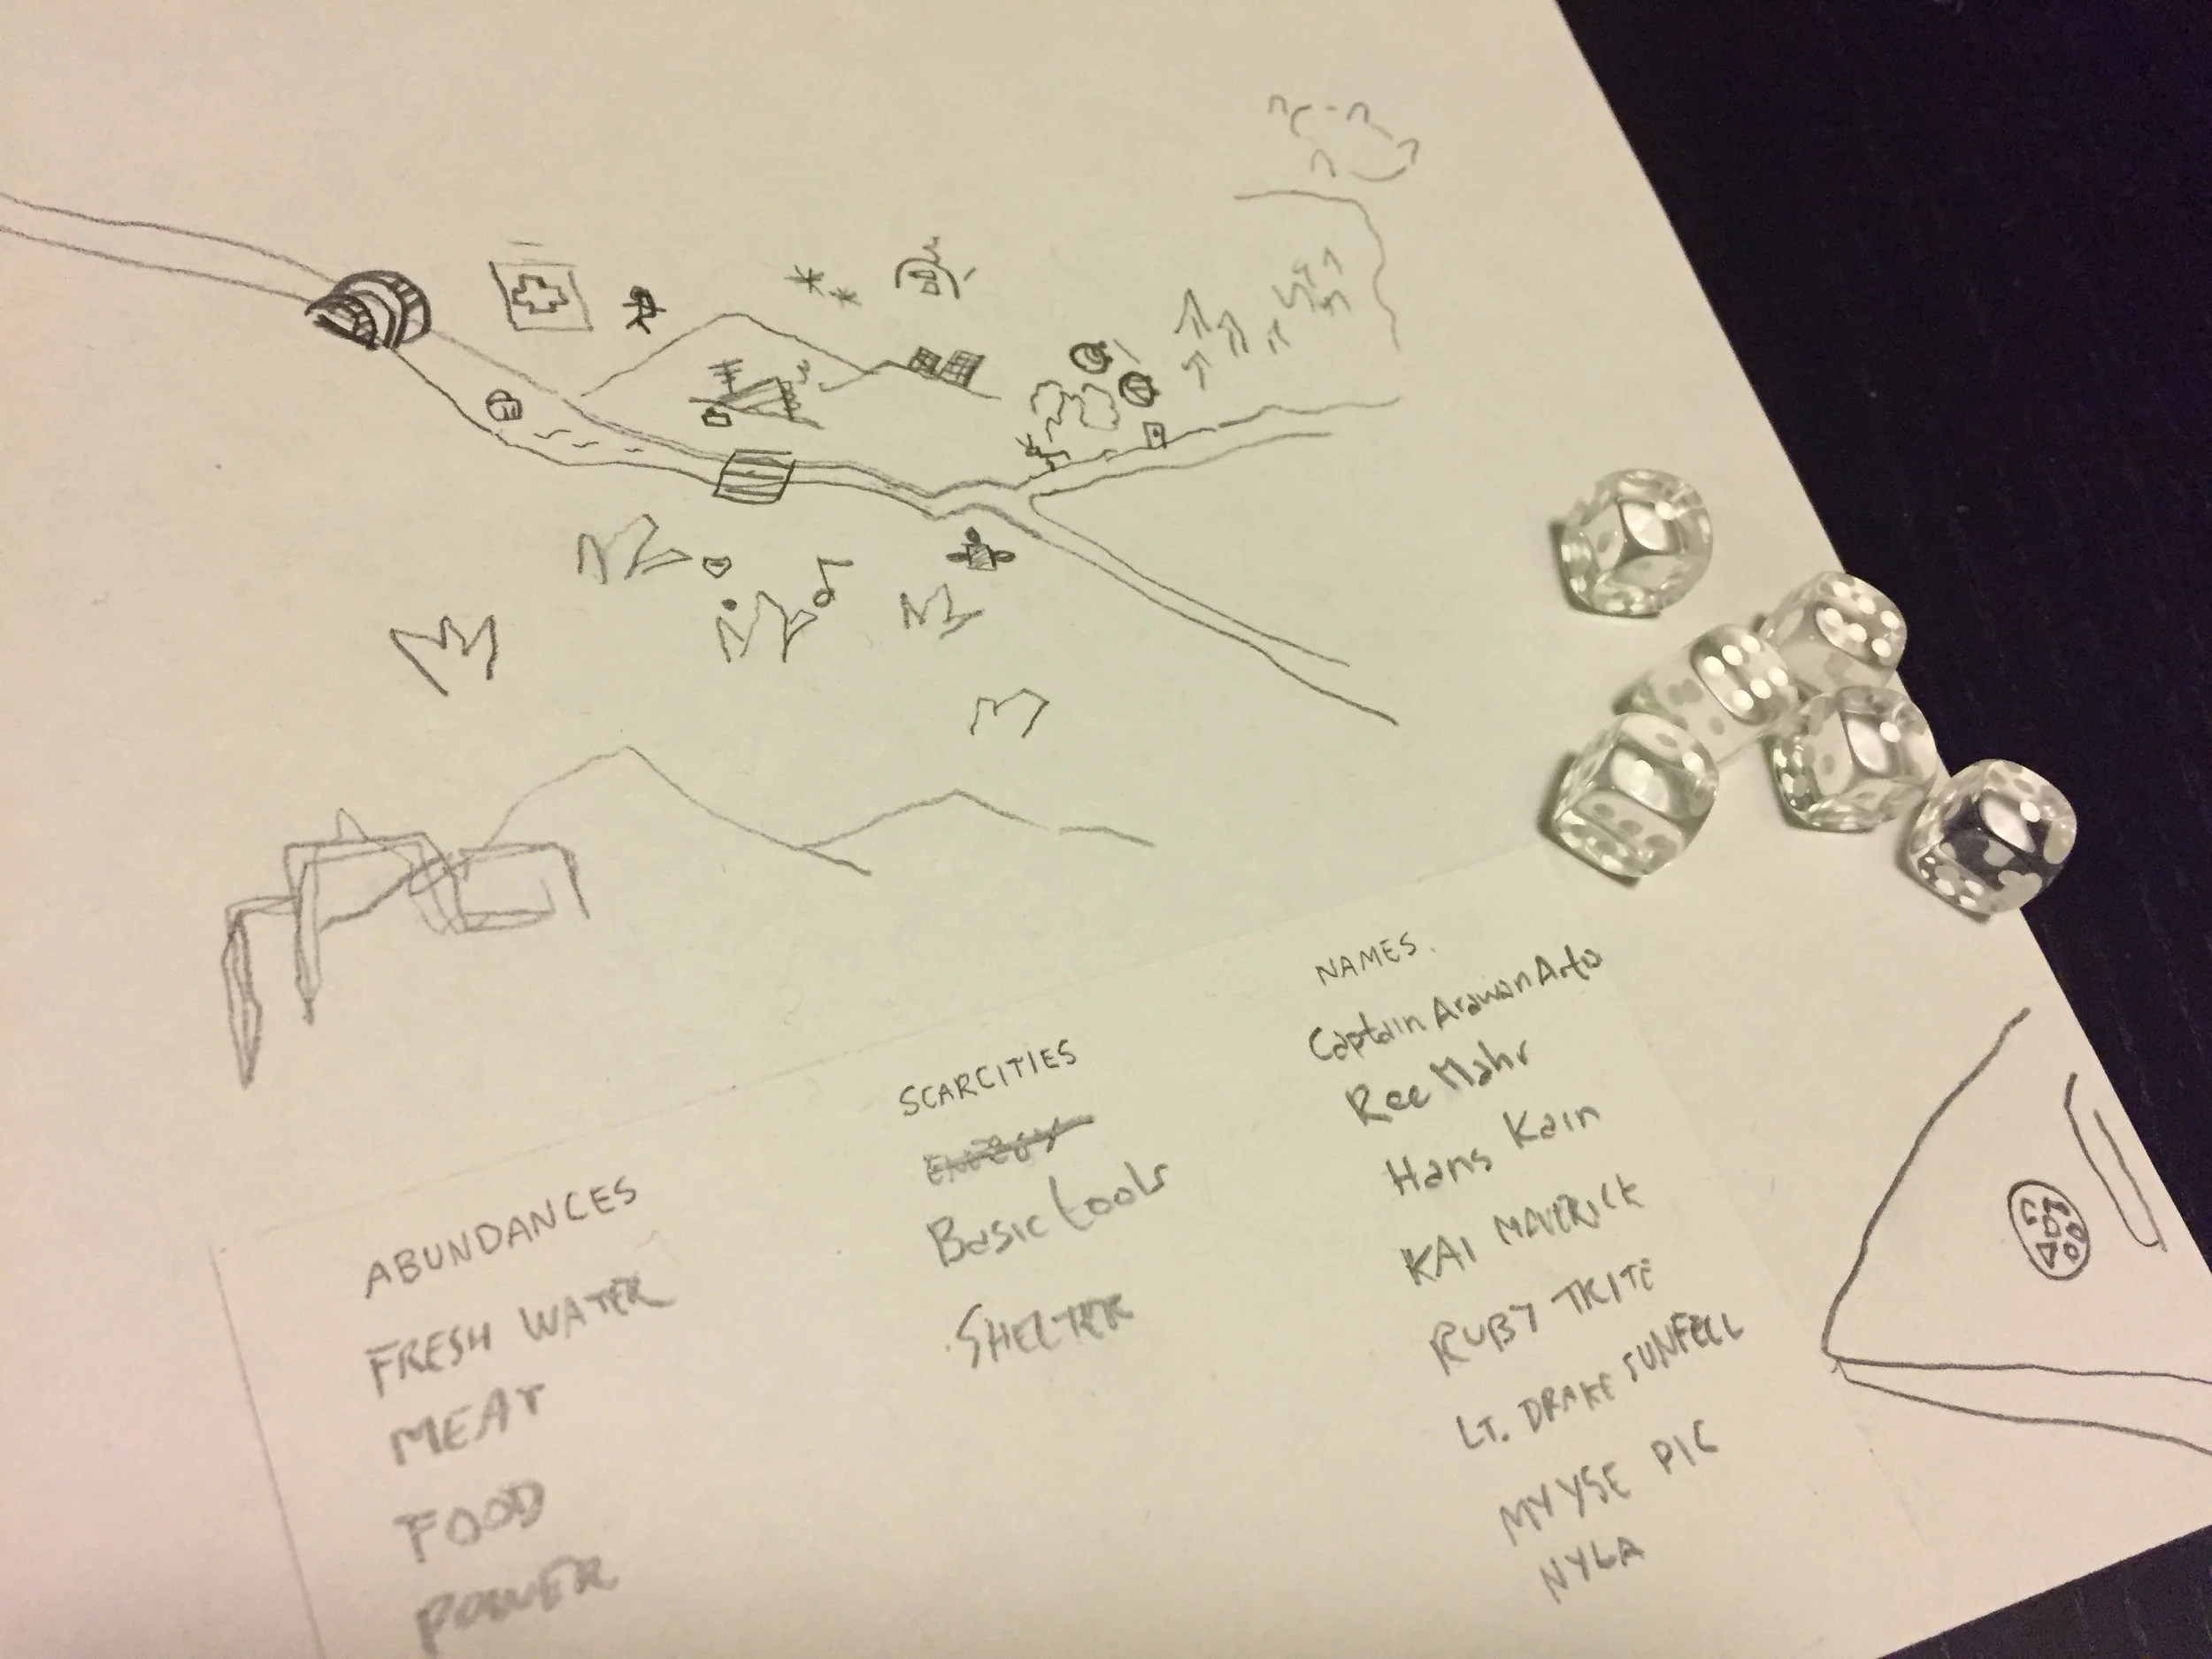 ABUNDANCES
FRESH WATER
MEAT
FOOD
POWER
SCARCITIES
ENERGY
Basic tools
SHELTER
NAMES.
Captain Arawan Arto
Ree Mahr
Hans Kain
KAI MAVERICK
RUBY TRITE
LT. DRAKE SUNFELL
MYYSE PIC
NYLA